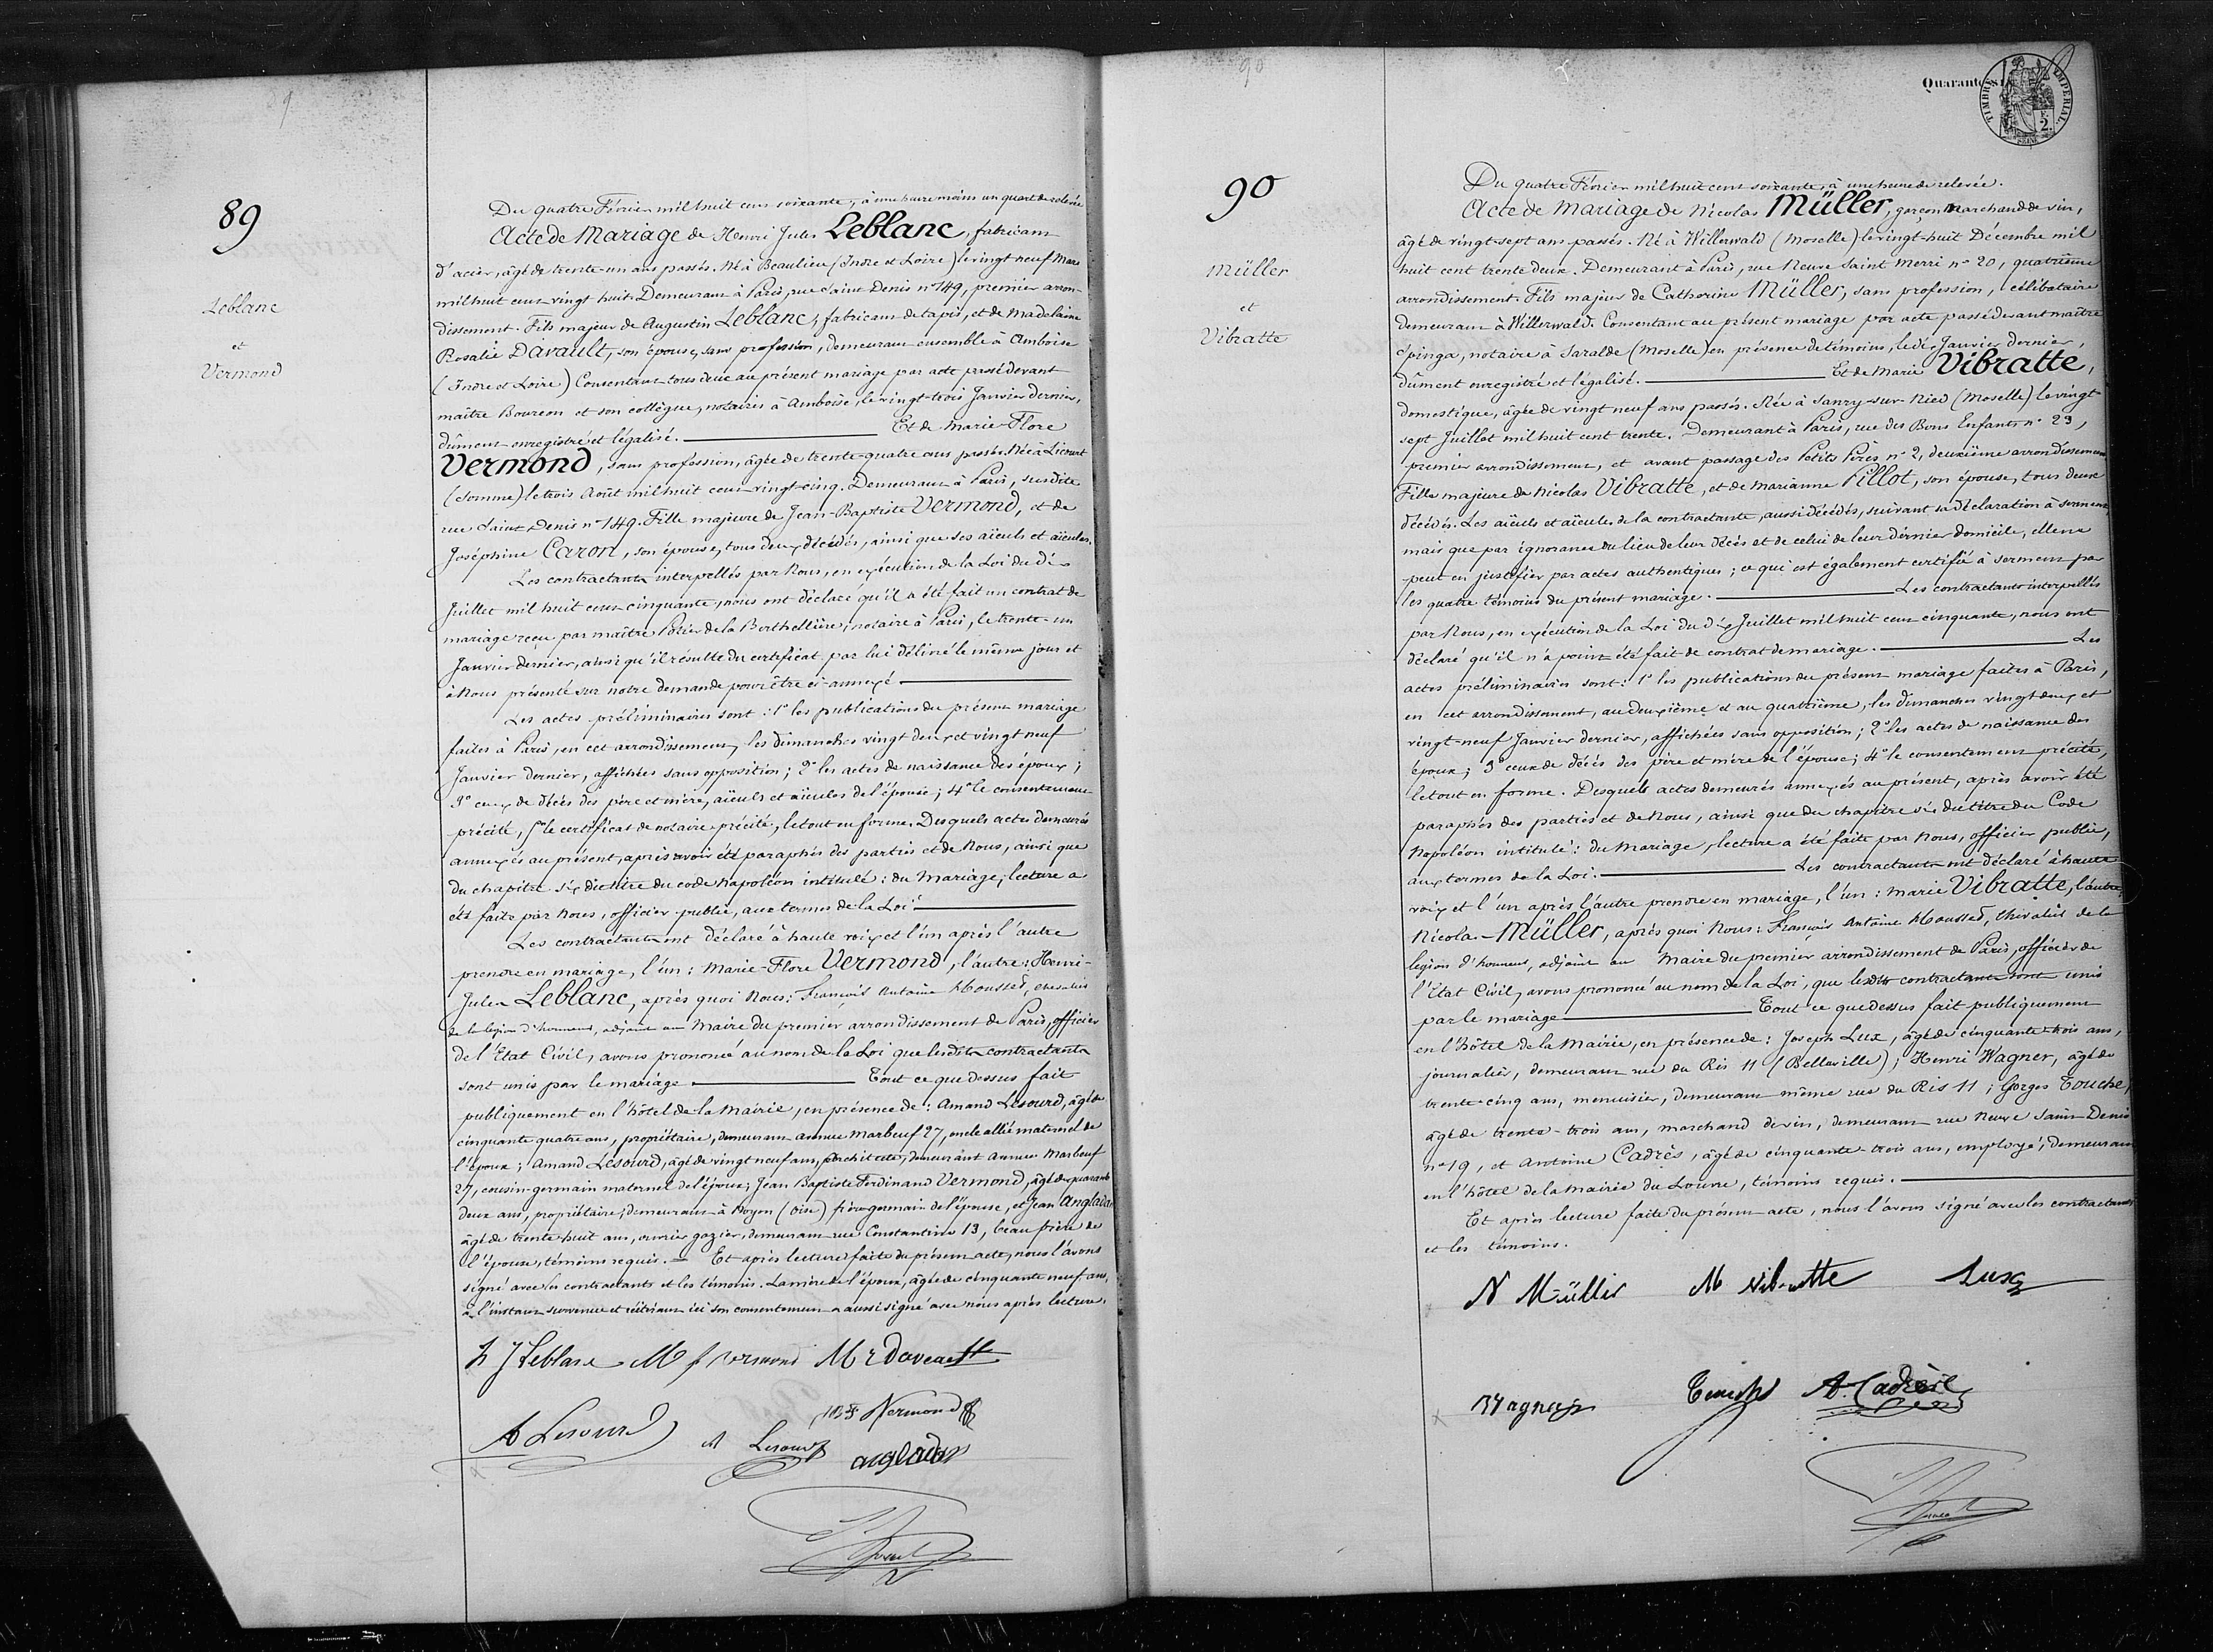 89
89
Leblanc
et
Vermond
Du quatre Février mil huit cent soixante, à une heure moins un quart de relevée
Acte de Mariage de Henri Jules Leblanc, fabricant
d'acier, âgé de trente-un ans passés. Né à Beaulieu (Indre et Loire) le vingt neuf Mars
mil huit cent vingt huit. Demeurant à Paris, rue Saint Denis nº 149, premier arron-
dissement. Fils majeur de Augustin Leblanc, fabricant de tapis, et de Madelaine
Rosalie Davault, son épouse, sans profession, demeurant ensemble à Amboise
(Indre et Loire) Consentant tous deux au présent mariage par acte passé devant
maître Boureon et son collègue, notaires à Amboise, le vingt-trois Janvier dernier,
dûment enregistré et légalisé. Et de Marie-Flore
Vermond, sans profession, âgée de trente-quatre ans passés. Née à Licourt
(Somme) le trois Août mil huit cent vingt-cinq. Demeurant à Paris, susdite
rue Saint Denis nº 149. Fille majeure de Jean-Baptiste Vermond, et de
Joséphine Caron, son épouse, tous deux décédés, ainsi que ses aïeuls et aïeules.
Les contractants interpellés par Nous, en exécution de la Loi du dix
Juillet mil huit cent cinquante, nous ont déclaré qu'il a été fait un contrat de
mariage reçu par maître Potier de la Berthellière, notaire à Paris, le trente-un
Janvier dernier, ainsi qu'il résulte du certificat par lui délivré le même jour et
à Nous présenté sur notre demande pour être ci-annexé
Les actes préliminaires sont : 1º les publications du présent mariage
faites à Paris, en cet arrondissement, les dimanches vingt deux et vingt neuf
Janvier dernier, affichées sans opposition ; 2º les actes de naissance des époux ;
3º ceux de décès des père et mère, aïeuls et aïeules de l'épouse ; 4º le consentement
précité, 5º le certificat de notaire précité, le tout en forme. Desquels actes demeurés
annexés au présent, après avoir été paraphés des parties et de Nous, ainsi que
du chapitre six du titre du code Napoléon intitulé : du Mariage ; lecture a
été faite par Nous, officier public, aux termes de la Loi.
Les contractants ont déclaré à haute voix et l'un après l'autre
prendre en mariage, l'un : Marie-Flore Vermond, l'autre : Henri-
Jules Leblanc, après quoi Nous : François Antoine Moussed, chevalier
de la légion d'honneur, adjoint au Maire du premier arrondissement de Paris, officier
de l'Etat Civil, avons prononcé au nom de la Loi que lesdits contractants
sont unis par le mariage Tout ce que dessus fait
publiquement en l'hôtel de la Mairie, en présence de : Amand Lesourd, âgé de
cinquante quatre ans, propriétaire, demeurant avenue Marbeuf 27, oncle allié maternel de
l'époux ; Amand Lesourd, âgé de vingt neuf ans, Architecte, demeurant avenue Marbeuf
27, cousin-germain maternel de l'époux ; Jean Baptiste Ferdinand Vermond, âgé de quarante
deux ans, propriétaire, demeurant à Noyon (Oise) frère germain de l'épouse, et Jean Anglada
âgé de trente huit ans, ouvrier gazier, demeurant rue Constantine 13, beau frère de
l'épouse, témoins requis. Et après lecture faite du présent acte, nous l'avons
signé avec les contractants et les témoins. La mère de l'époux, âgée de cinquante neuf ans,
à l'instant survenue et réitérant ici son consentement a aussi signé avec nous après lecture.
h J Leblanc M f Vermond M R Davault
A Lesourd A Lesourd JBF Vermond
anglada
90
90
Müller
et
Vibratte
Quarante
TIMBRE IMPERIAL
2.
SEINE
Du quatre Février mil huit cent soixante, à une heure de relevée.
Acte de Mariage de Nicolas Müller, garçon Marchand de vin,
âgé de vingt-sept ans passés. Né à Willerwald (Moselle) le vingt-huit Décembre mil
huit cent trente deux. Demeurant à Paris, rue Neuve Saint Merri nº 20, quatrième
arrondissement. Fils majeur de Catherine Müller, sans profession, célibataire
demeurant à Willerwald. Consentant au présent mariage par acte passé devant maître
Spinga, notaire à Saralbe (Moselle) en présence de témoins, le dix Janvier dernier,
dûment enregistré et légalisé. Et de Marie Vibratte,
domestique, âgée de vingt neuf ans passés. Née à Sanry-sur-Nied (Moselle) le vingt
sept Juillet mil huit cent trente. Demeurant à Paris, rue des Bons Enfants nº 23,
premier arrondissement, et avant passage des Petits Pères nº 2, deuxième arrondissement
Fille majeure de Nicolas Vibratte, et de Marianne Pillot, son épouse, tous deux
décédés. Les aïeuls et aïeules de la contractante, aussi décédés, suivant sa déclaration à serment,
mais que par ignorance du lieu de leur décès et de celui de leur dernier domicile, elle ne
peut en justifier par actes authentiques ; ce qui est également certifié à serment par
les quatre témoins du présent mariage. Les contractants interpellés
par Nous, en exécution de la Loi du dix Juillet mil huit cent cinquante, nous ont
déclaré qu'il n'a point été fait de contrat de mariage. Les
actes préliminaires sont : 1º les publications du présent mariage faites à Paris,
en cet arrondissement, au deuxième et au quatrième, les dimanches vingt deux et
vingt-neuf Janvier dernier, affichées sans opposition ; 2º les actes de naissance des
époux ; 3º ceux de décès des père et mère de l'épouse ; 4º le consentement précité,
le tout en forme. Desquels actes demeurés annexés au présent, après avoir été
paraphés des parties et de Nous, ainsi que du chapitre six du titre du Code
Napoléon intitulé : du Mariage, lecture a été faite par Nous, officier public,
aux termes de la Loi. Les contractants ont déclaré à haute
voix et l'un après l'autre prendre en mariage, l'un : Marie Vibratte, l'autre,
Nicolas Müller, après quoi Nous : François Antoine Moussed, Chevalier de la
légion d'honneur, adjoint au Maire du premier arrondissement de Paris, officier de
l'Etat Civil, avons prononcé au nom de la Loi, que lesdits contractants sont unis
par le mariage Tout ce que dessus fait publiquement
en l'hôtel de la Mairie, en présence de : Joseph Lux, âgé de cinquante-trois ans,
journalier, demeurant rue du Ris 11 (Belleville) ; Henri Wagner, âgé de
trente-cinq ans, menuisier, demeurant même rue du Ris 11 ; Gorges Touche,
âgé de trente-trois ans, marchand de vin, demeurant rue Neuve Saint Denis
nº 19, et Antoine Cadrès, âgé de cinquante-trois ans, employé, demeurant
en l'hôtel de la Mairie du Louvre, témoins requis.
Et après lecture faite du présent acte, nous l'avons signé avec les contractants
et les témoins.
N Müller M Vibratte Lux
Wagner Touche A. Cadrès